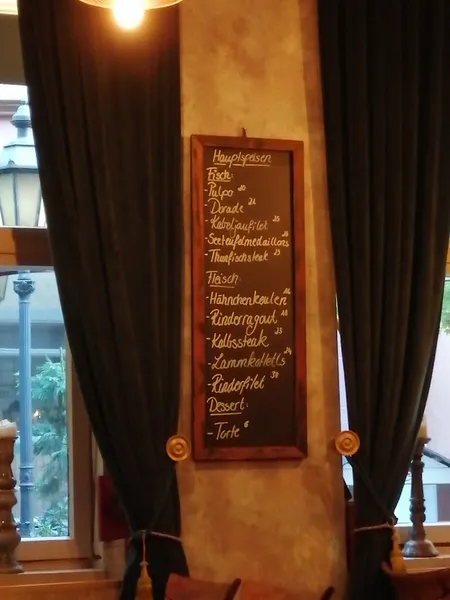 Hauptspeisen
Fisch:
- Pulpo
- Dorade
- Kabeljaufilet
- Seeteufelmedaillons
- Thunfischsteak
Fleisch:
- Hähnchenkeulen
- Rinderragout
- Kalbssteak
- Lammkotletts
- Rinderfilet
Dessert:
- Torte 6